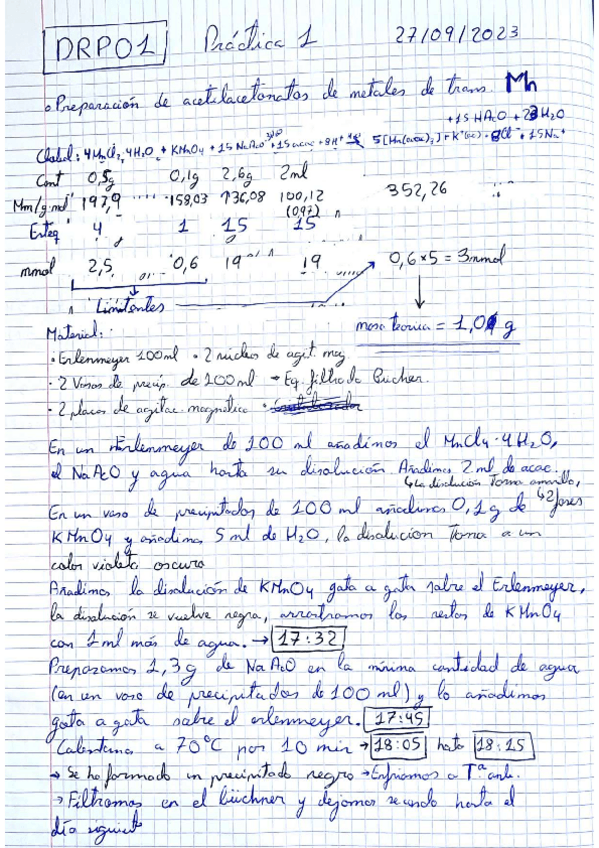 DRP01 Práctica 1 27/09/2023
• Preparación de acetilacetonatos de metales de trans. Mn
+15 HAcO + 23 H2O
4 MnCl2·4H2O + KMnO4 + 15 NaAcO + 15 acac + 8H+ → 5[Mn(acac)3] + K+(ac) + 15Na+
Cont 0,5g 0,1g 2,6g 2ml
Mm/g·mol-1 197,9 158,03 136,08 100,12 352,26
(0,97)
Esteq 4 1 15 15
mmol 2,5 0,6 19 19 0,6×5 = 3mmol
Limitantes
masa teórica = 1,0 g
Material:
• Erlenmeyer 100ml • 2 núcleos de agit. mag
• 2 Vasos de precip. de 100ml → Eq. filtrado Bucher.
• 2 placas de agitac magnética •
En un Erlenmeyer de 100 ml añadimos el MnCl4·4H2O,
el NaAcO y agua hasta su disolución. Añadimos 2 ml de acac.
↳ La disolución toma amarillo,
↳ 2 fases
En un vaso de precipitados de 100 ml añadimos 0,1g de
KMnO4 y añadimos 5 ml de H2O, la disolución toma a un
color violeta oscuro
Añadimos la disolución de KMnO4 gota a gota sobre el Erlenmeyer,
la disolución se vuelve negra, arrastramos los restos de KMnO4
con 1 ml más de agua. → 17:32
Preparamos 1,3 g de NaAcO en la mínima cantidad de agua
(en un vaso de precipitados de 100 ml) y lo añadimos
gota a gota sobre el erlenmeyer. 17:45
Calentamos a 70ºC por 10 min → 18:05 hasta 18:15
→ Se ha formado un precipitado negro → Enfriamos a Tª amb.
→ Filtramos en el büchner y dejamos secando hasta el
día siguiente